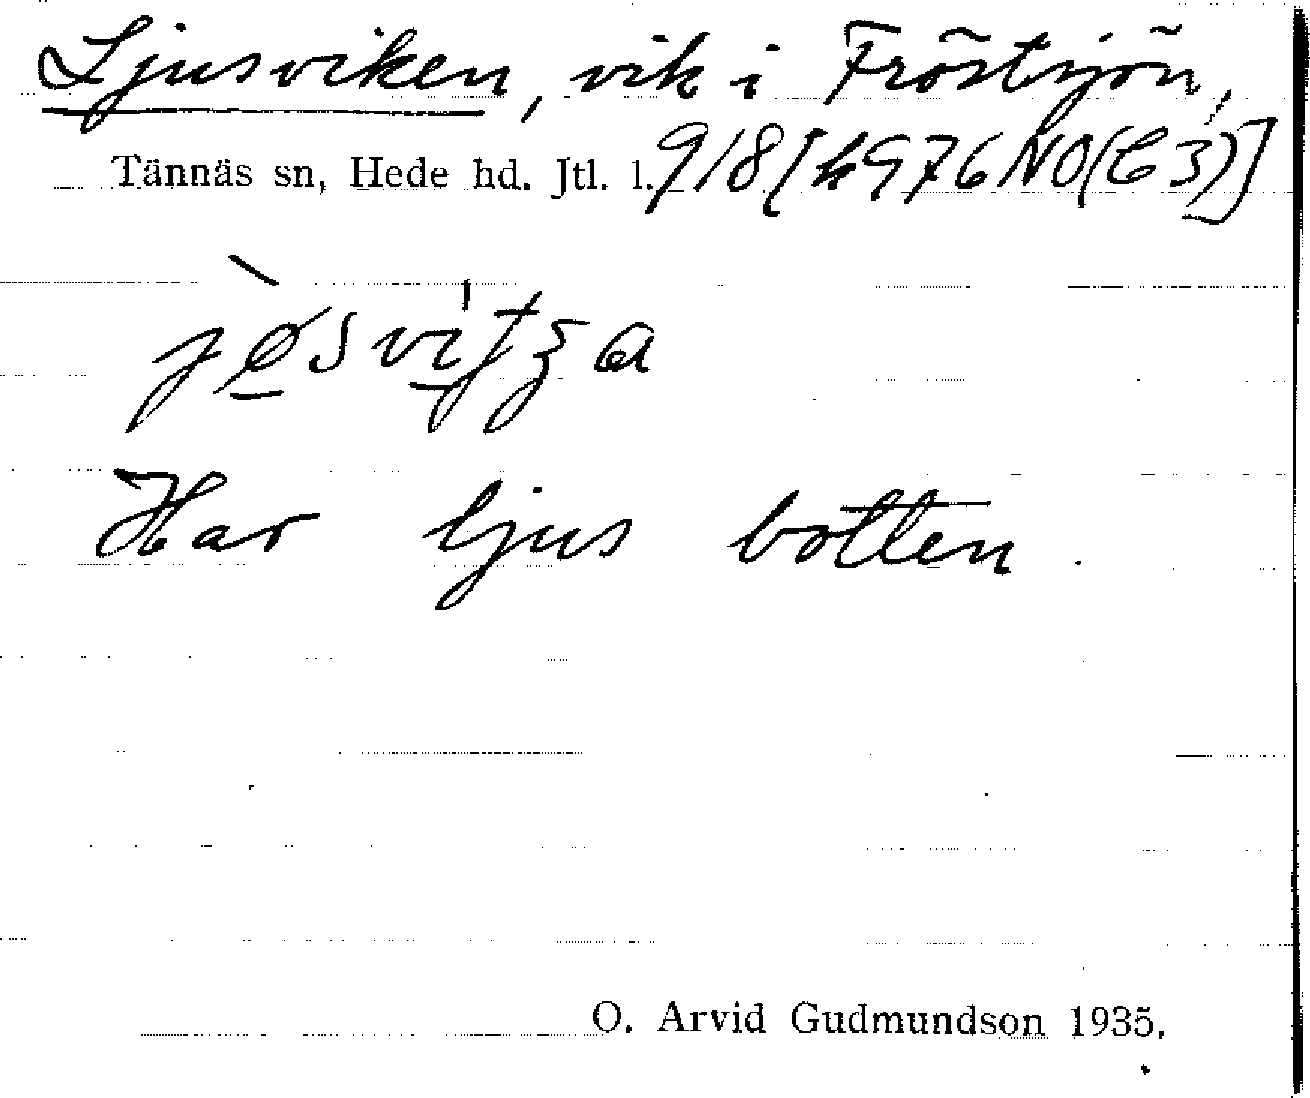 Ljusviken, vik i Fröstsjön,
Tännäs sn, Hede hd. Jtl. l. 9/8 [4976 NO (C 3)]
Har ljus botten.
O. Arvid Gudmundson 1935.